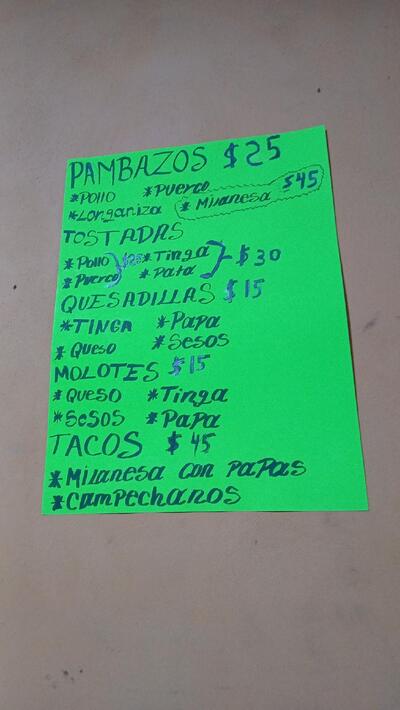 PAMBAZOS $25
*Pollo *Puerco
*Longaniza *Milanesa $45
TOSTADAS
*Pollo *Tinga
*Puerco } $25 *Pata } $30
QUESADILLAS $15
*TINGA *Papa
*Queso *Sesos
MOLOTES $15
*Queso *Tinga
*Sesos *Papa
TACOS $45
*Milanesa con Papas
*Campechanos